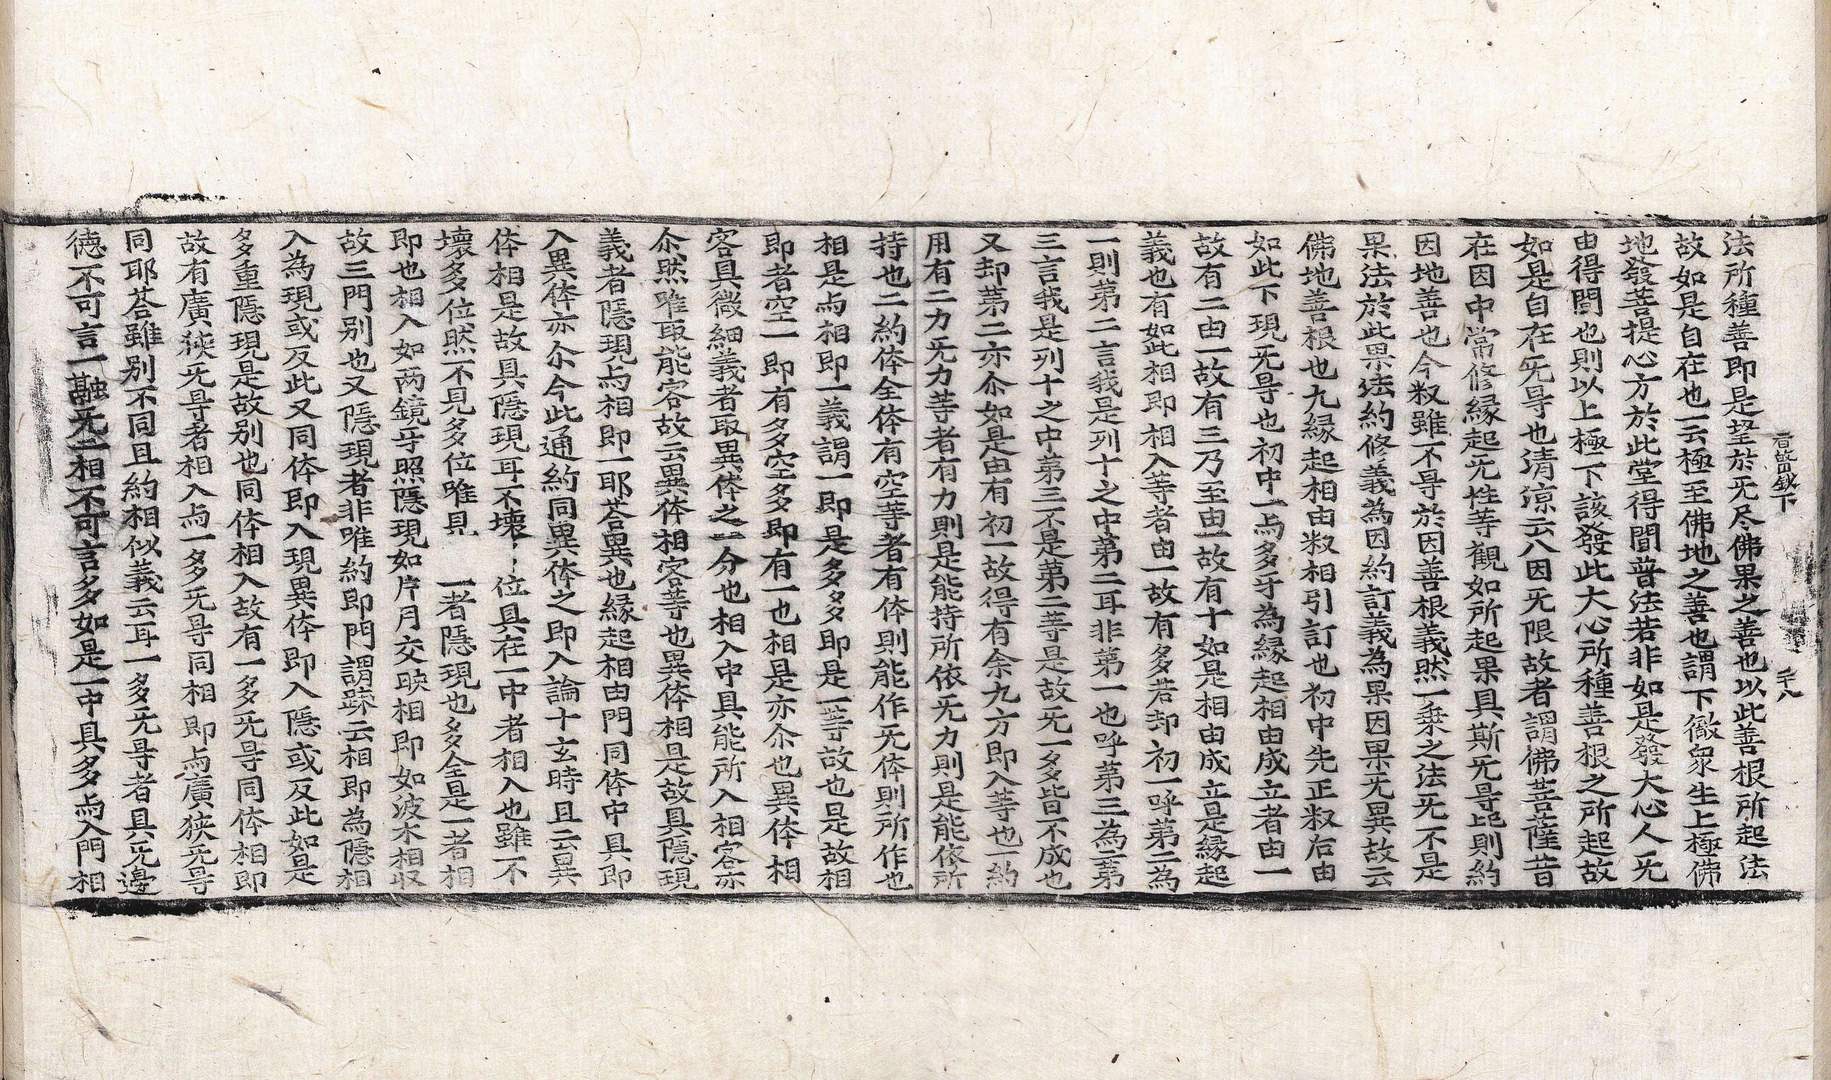 法所種善即是望於无尽佛果之善也以此善根所起法
故如是自在也一云極至佛地之善也謂下徹衆生上極佛
地發菩提心方於此堂得聞普法若非如是發大心人无
由得聞也則以上極下該發此大心所種善根之所起故
如是自在无㝵也清凉云八因无限故者謂佛菩薩昔
在因中常修縁起无性等觀如所起果具斯无㝵此則約
因地善也今叙雖不㝵於因善根義然一乗之法无不是
果法於此果法約修義為因約訂義為果因果无異故云
佛地善根也九縁起相由叙相引訂也初中先正叙后由
如此下現无㝵也初中一与多牙為縁起相由成立者由一
故有二由一故有三乃至由一故有十如是相由成立是縁起
義也有如此相即相入等者由一故有多若却初一呼第二為
一則第二言我是列十之中第二耳非第一也呼第三為一第
三言我是列十之中第三不是第二等是故无一多皆不成也
又却第二亦尒如是由有初一故得有余九方即入等也一約
用有二力无力等者有力則是能持所依无力則是能依所
持也二約体全体有空等者有体則能作无体則所作也
相是与相即一義謂一即是多多即是一等故也是故相
即者空一即有多空多即有一也相是亦尒也異体相
容具微細義者取異体之一分也相入中具能所入相容亦
尒然唯取能容故云異体相容等也異体相是故具隱現
義者隱現与相即一耶荅異也縁起相由門同体中具即
入異体亦尒今此通約同異体之即入論十玄時且云異
体相是故具隱現耳不壊一位具在一中者相入也雖不
壊多位然不見多位唯見 一者隱現也多全是一者相
即也相入如两鏡牙照隱現如片月交映相即如波水相収
故三門别也又隱現者非唯約即門謂䟽云相即為隱相
入為現或反此又同体即入現異体即入隱或反此如是
多重隱現是故别也同体相入故有一多无㝵同体相即
故有廣狹无㝵者相入与一多无㝵同相即与廣狹无㝵
同耶荅雖别不同且約相似義云耳一多无㝵者具无邊
徳不可言一融无二相不可言多如是一中具多与入門相